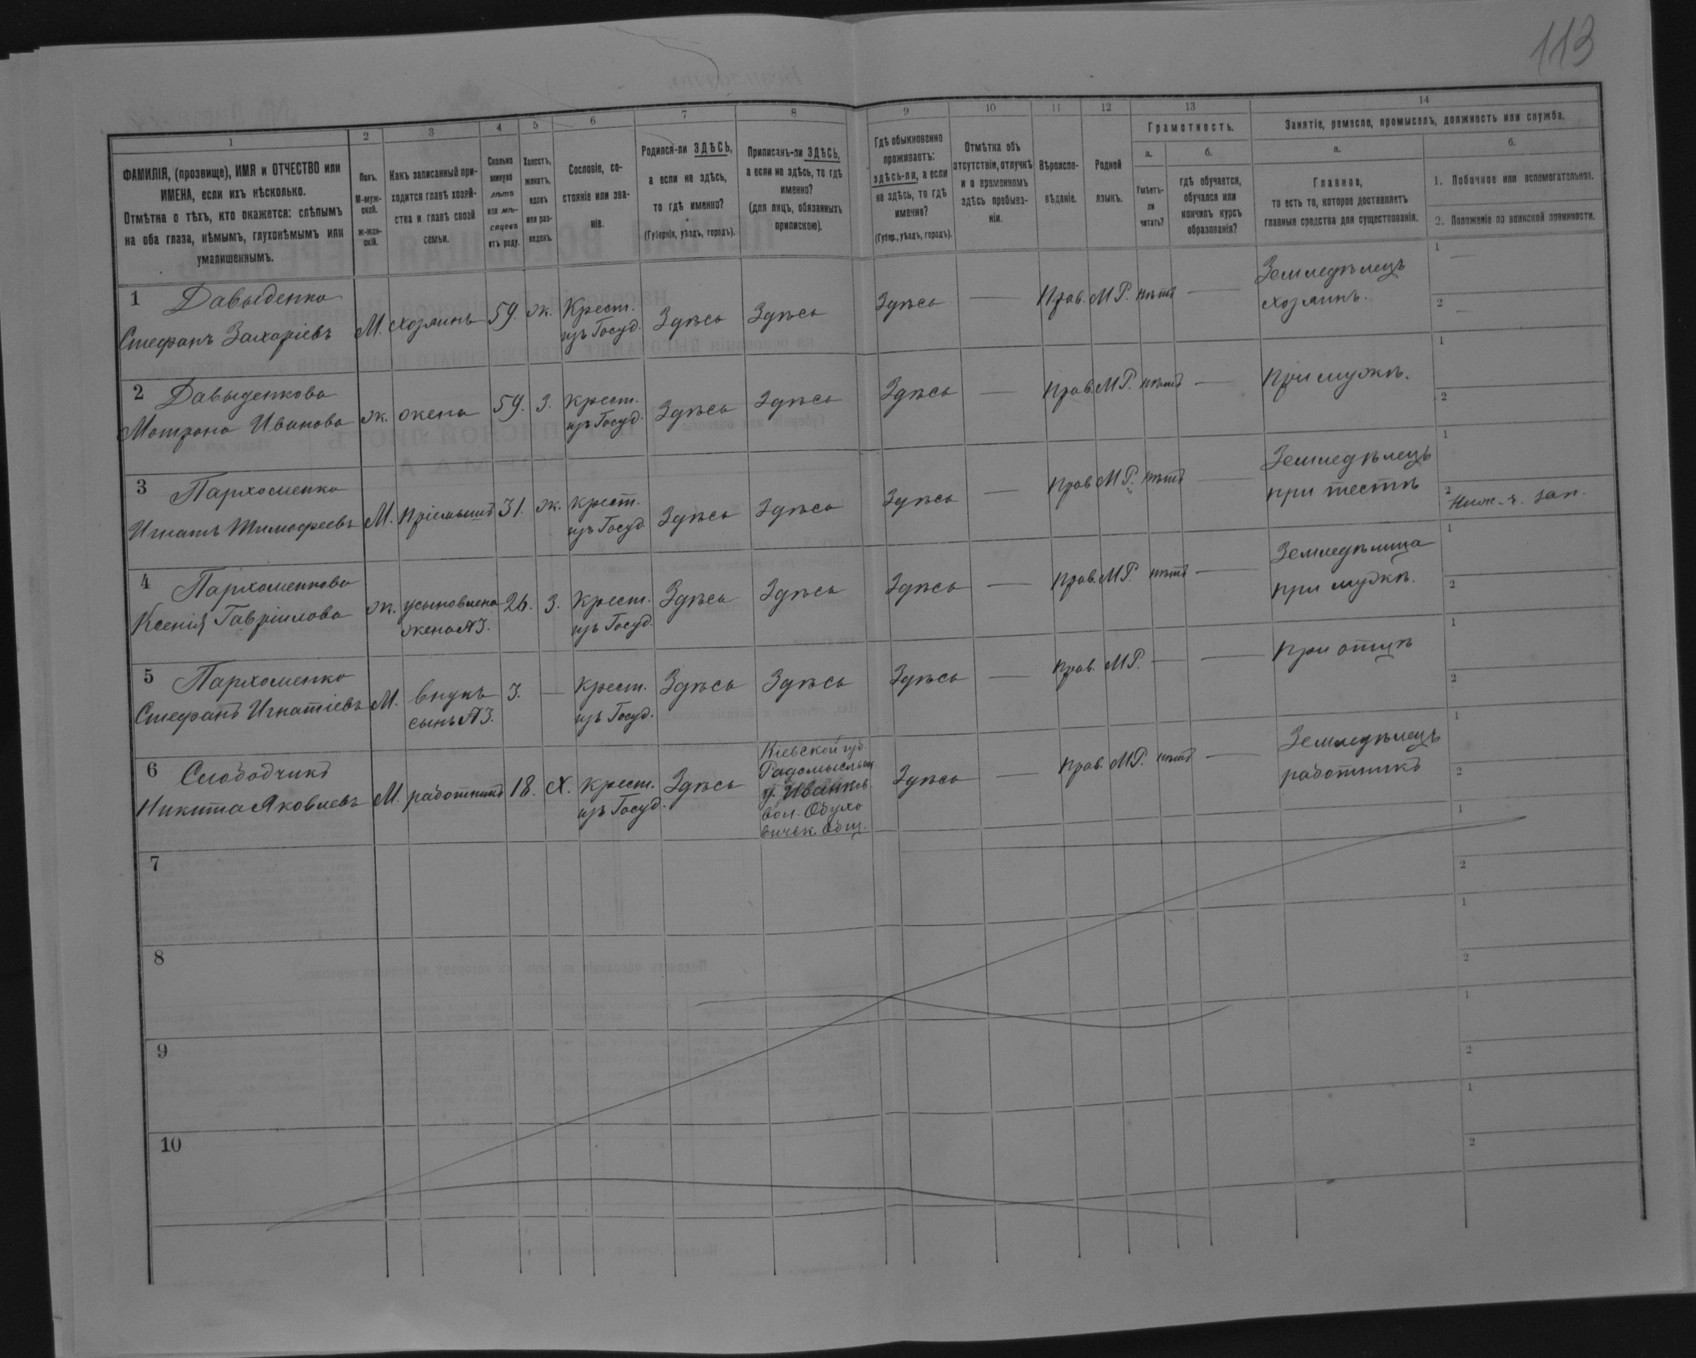 113
1 2 3 4 5 6 7 8 9 10 11 12 13 14
ФАМИЛІЯ, (прозвище), ИМЯ и ОТЧЕСТВО или
ИМЕНА, если ихъ нѣсколько.
Отмѣтка о тѣхъ, кто окажется: слѣпымъ
на оба глаза, нѣмымъ, глухонѣмымъ или
умалишеннымъ.
Полъ.
М-муж-
ской.
Ж-жен-
скій.
Какъ записанный при-
ходится главѣ хозяй-
ства и главѣ своей
семьи.
Сколько
минуло
лѣтъ
или мѣ-
сяцевъ
отъ роду.
Холостъ,
женатъ,
вдовъ
или раз-
веденъ.
Сословіе, со-
стояніе или зва-
ніе.
Родился-ли ЗДѢСЬ,
а если не здѣсь,
то гдѣ именно?
(Губернія, уѣздъ, городъ).
Приписанъ-ли ЗДѢСЬ,
а если не здѣсь, то гдѣ
именно?
(для лицъ, обязанныхъ
припискою).
Гдѣ обыкновенно
проживаетъ:
здѣсь-ли, а если
не здѣсь, то гдѣ
именно?
(Губер., уѣздъ, городъ).
Отмѣтка объ
отсутствіи, отлучкѣ
и о временномъ
здѣсь пребыва-
ніи.
Вѣроиспо-
вѣданіе.
Родной
языкъ.
Грамотность.
а.
Умѣетъ-
ли
читать?
б.
гдѣ обучается,
обучался или
кончилъ курсъ
образованія?
Занятіе, ремесло, промыселъ, должность или служба.
а.
Главное,
то есть то, которое доставляетъ
главныя средства для существованія.
б.
1. Побочное или вспомогательное.
2. Положеніе по воинской повинности.
1 Давыденко
Стефанъ Захаріевъ М. хозяинъ 59. ж. Крест.
изъ Госуд. Здѣсь Здѣсь Здѣсь — Прав. МР. нѣтъ — Земледѣлецъ
хозяинъ. 1 —
2 —
2 Давыденкова
Мотрона Иванова ж. жена 59. З. Крест.
изъ Госуд. Здѣсь Здѣсь Здѣсь — Прав. МР. нѣтъ — При мужѣ. 1
2
3 Пархоменко
Игнатъ Тимофеевъ М. Пріемышъ 31. ж. Крест.
изъ Госуд. Здѣсь Здѣсь Здѣсь — Прав. МР. нѣтъ — Земледѣлецъ
при тестѣ 1
2 Ниж. ч. зап.
4 Пархоменкова
Ксенія Гавріилова ж. усыновлена
жена №3. 26. З. Крест.
изъ Госуд. Здѣсь Здѣсь Здѣсь — Прав. МР. нѣтъ — Земледѣлица
при мужѣ. 1
2
5 Пархоменко
Стефанъ Игнатіевъ М. внукъ
сынъ №3. 3. — Крест.
изъ Госуд. Здѣсь Здѣсь Здѣсь — Прав. МР. — — При отцѣ 1
2
6 Слободчикъ
Никита Яковлевъ М. работникъ 18. Х. Крест.
изъ Госуд. Здѣсь Кіевской губ.
Радомысльск.
у. Иванков.
вол. Обухо
вичск. общ. Здѣсь — Прав. МР. нѣтъ — Земледѣлецъ
работникъ 1
2
7 1
2
8 1
2
9 1
2
10 1
2